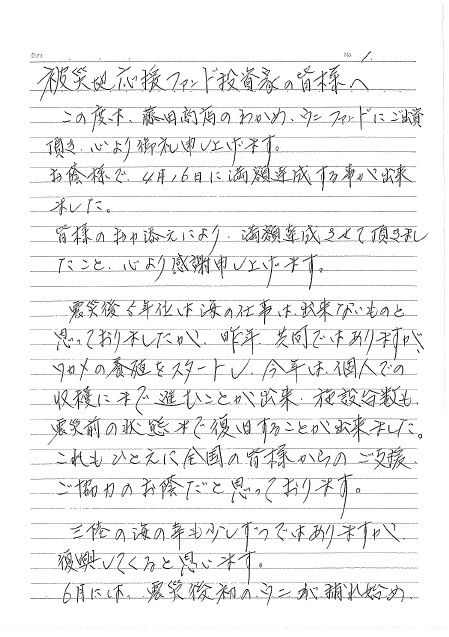 Date
No. 1.
被災地応援ファンド投資家の皆様へ
この度は、藤田商店のわかめ、ウニファンドにご出資
頂き、心より御礼申し上げます。
お蔭様で、4月16日に満額達成する事が出来
ました。
皆様のお力添えにより、満額達成させて頂きまし
たこと、心より感謝申し上げます。
震災後5年位は海の仕事は、出来ないものと
思っておりましたが、昨年、共同ではありますが、
ワカメの養殖をスタートし、今年は、個人での
収穫にまで進むことが出来、施設台数も、
震災前の状態まで復旧することが出来ました。
これもひとえに全国の皆様からのご支援、
ご協力のお蔭だと思っております。
三陸の海の幸も少しずつではありますが、
復興してくると思います。
6月には、震災後初のウニが獲れ始め、